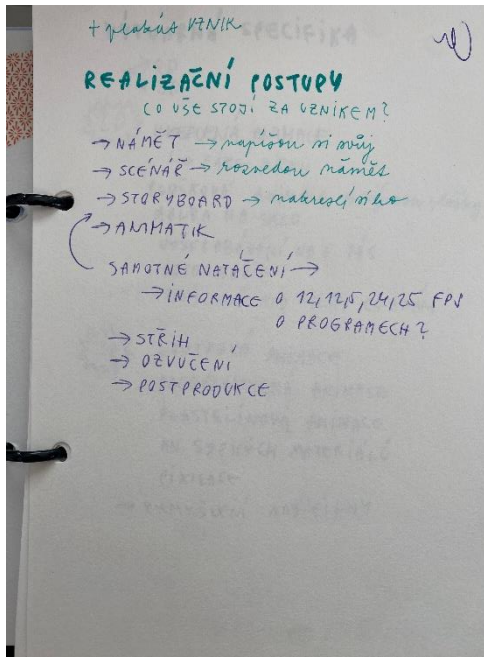 + plakát VZNIK
REALIZAČNÍ POSTUPY
CO VŠE STOJÍ ZA VZNIKEM?
→ NÁMĚT → napíšou si svůj
→ SCÉNÁŘ → rozvedou námět
→ STORYBOARD → nakreslí si ho
→ ANIMATIK
SAMOTNÉ NATÁČENÍ →
→ INFORMACE O 12, 12,5, 24, 25 FPS
O PROGRAMECH?
→ STŘIH
→ OZVUČENÍ
→ POSTPRODUKCE